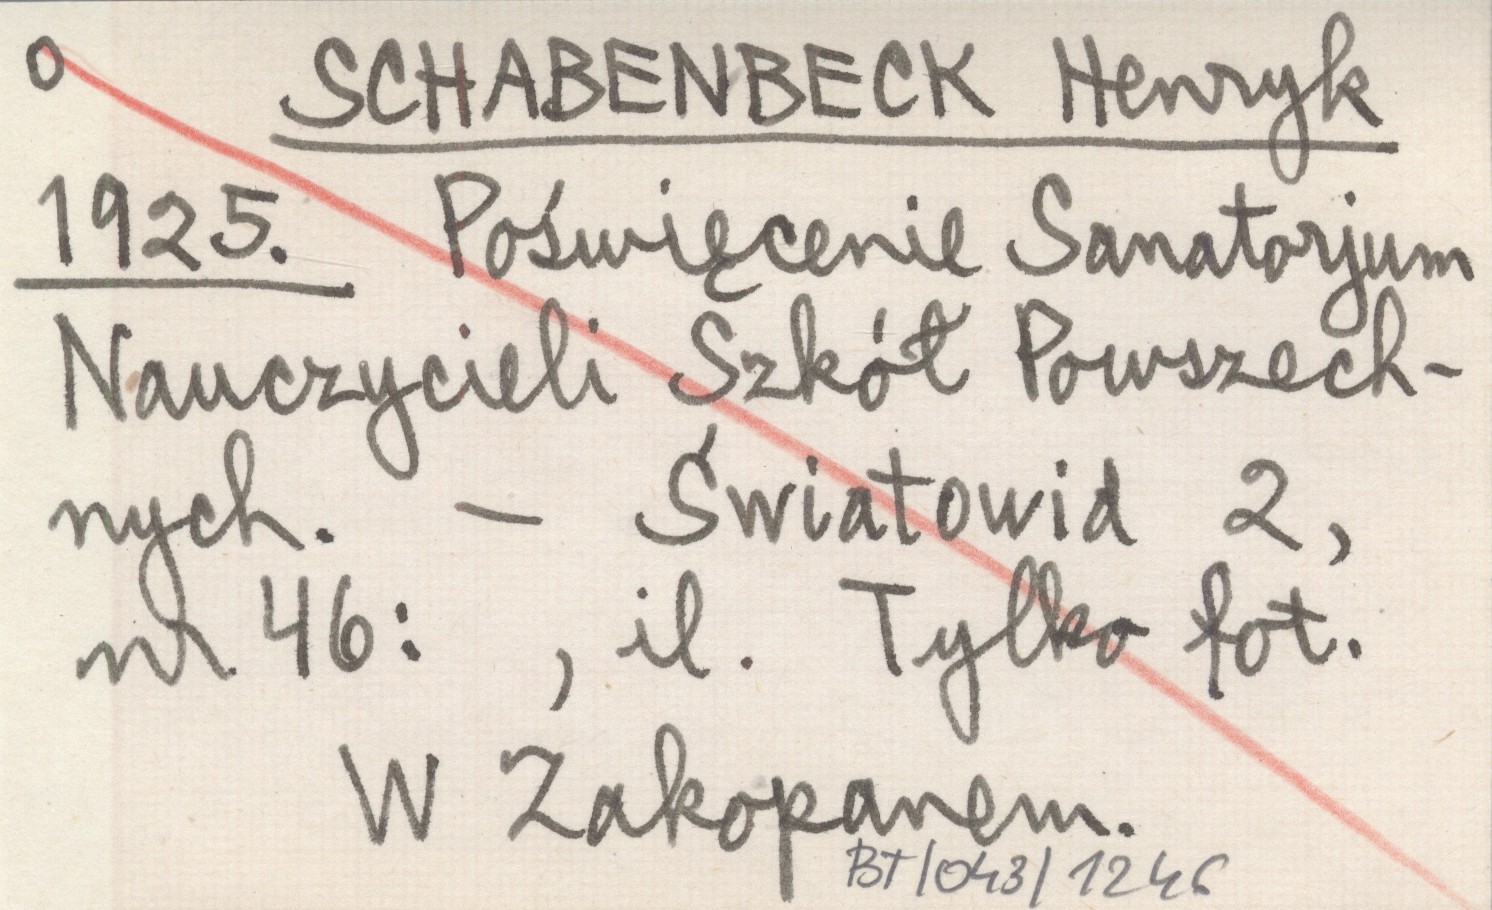 o SCHABENBECK Henryk
1925. Poświęcenie Sanatorjum
Nauczycieli Szkół Powszech-
nych. — Światowid 2,
nr 46: , il. Tylko fot.
W Zakopanem.
BT/043/1246